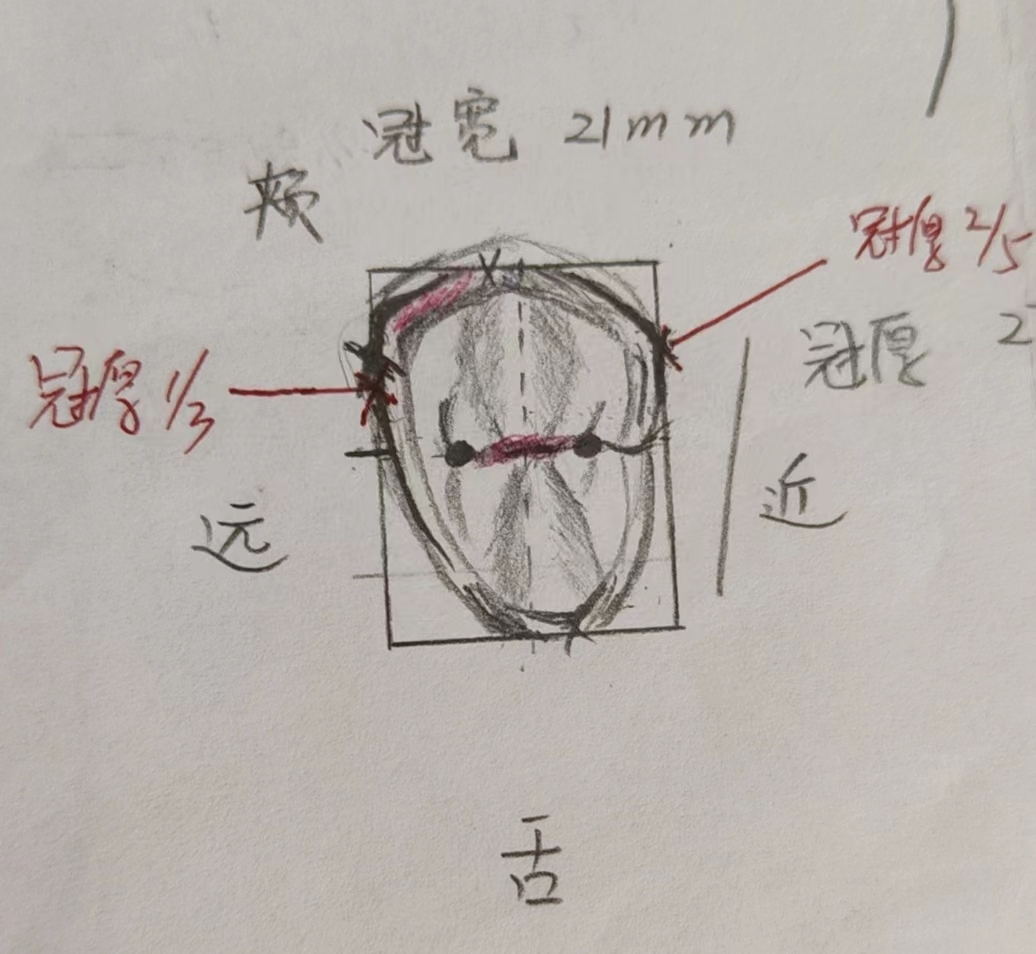 冠宽 21mm
颊
冠厚 2/5
冠厚 2
冠厚 1/3
近
远
舌